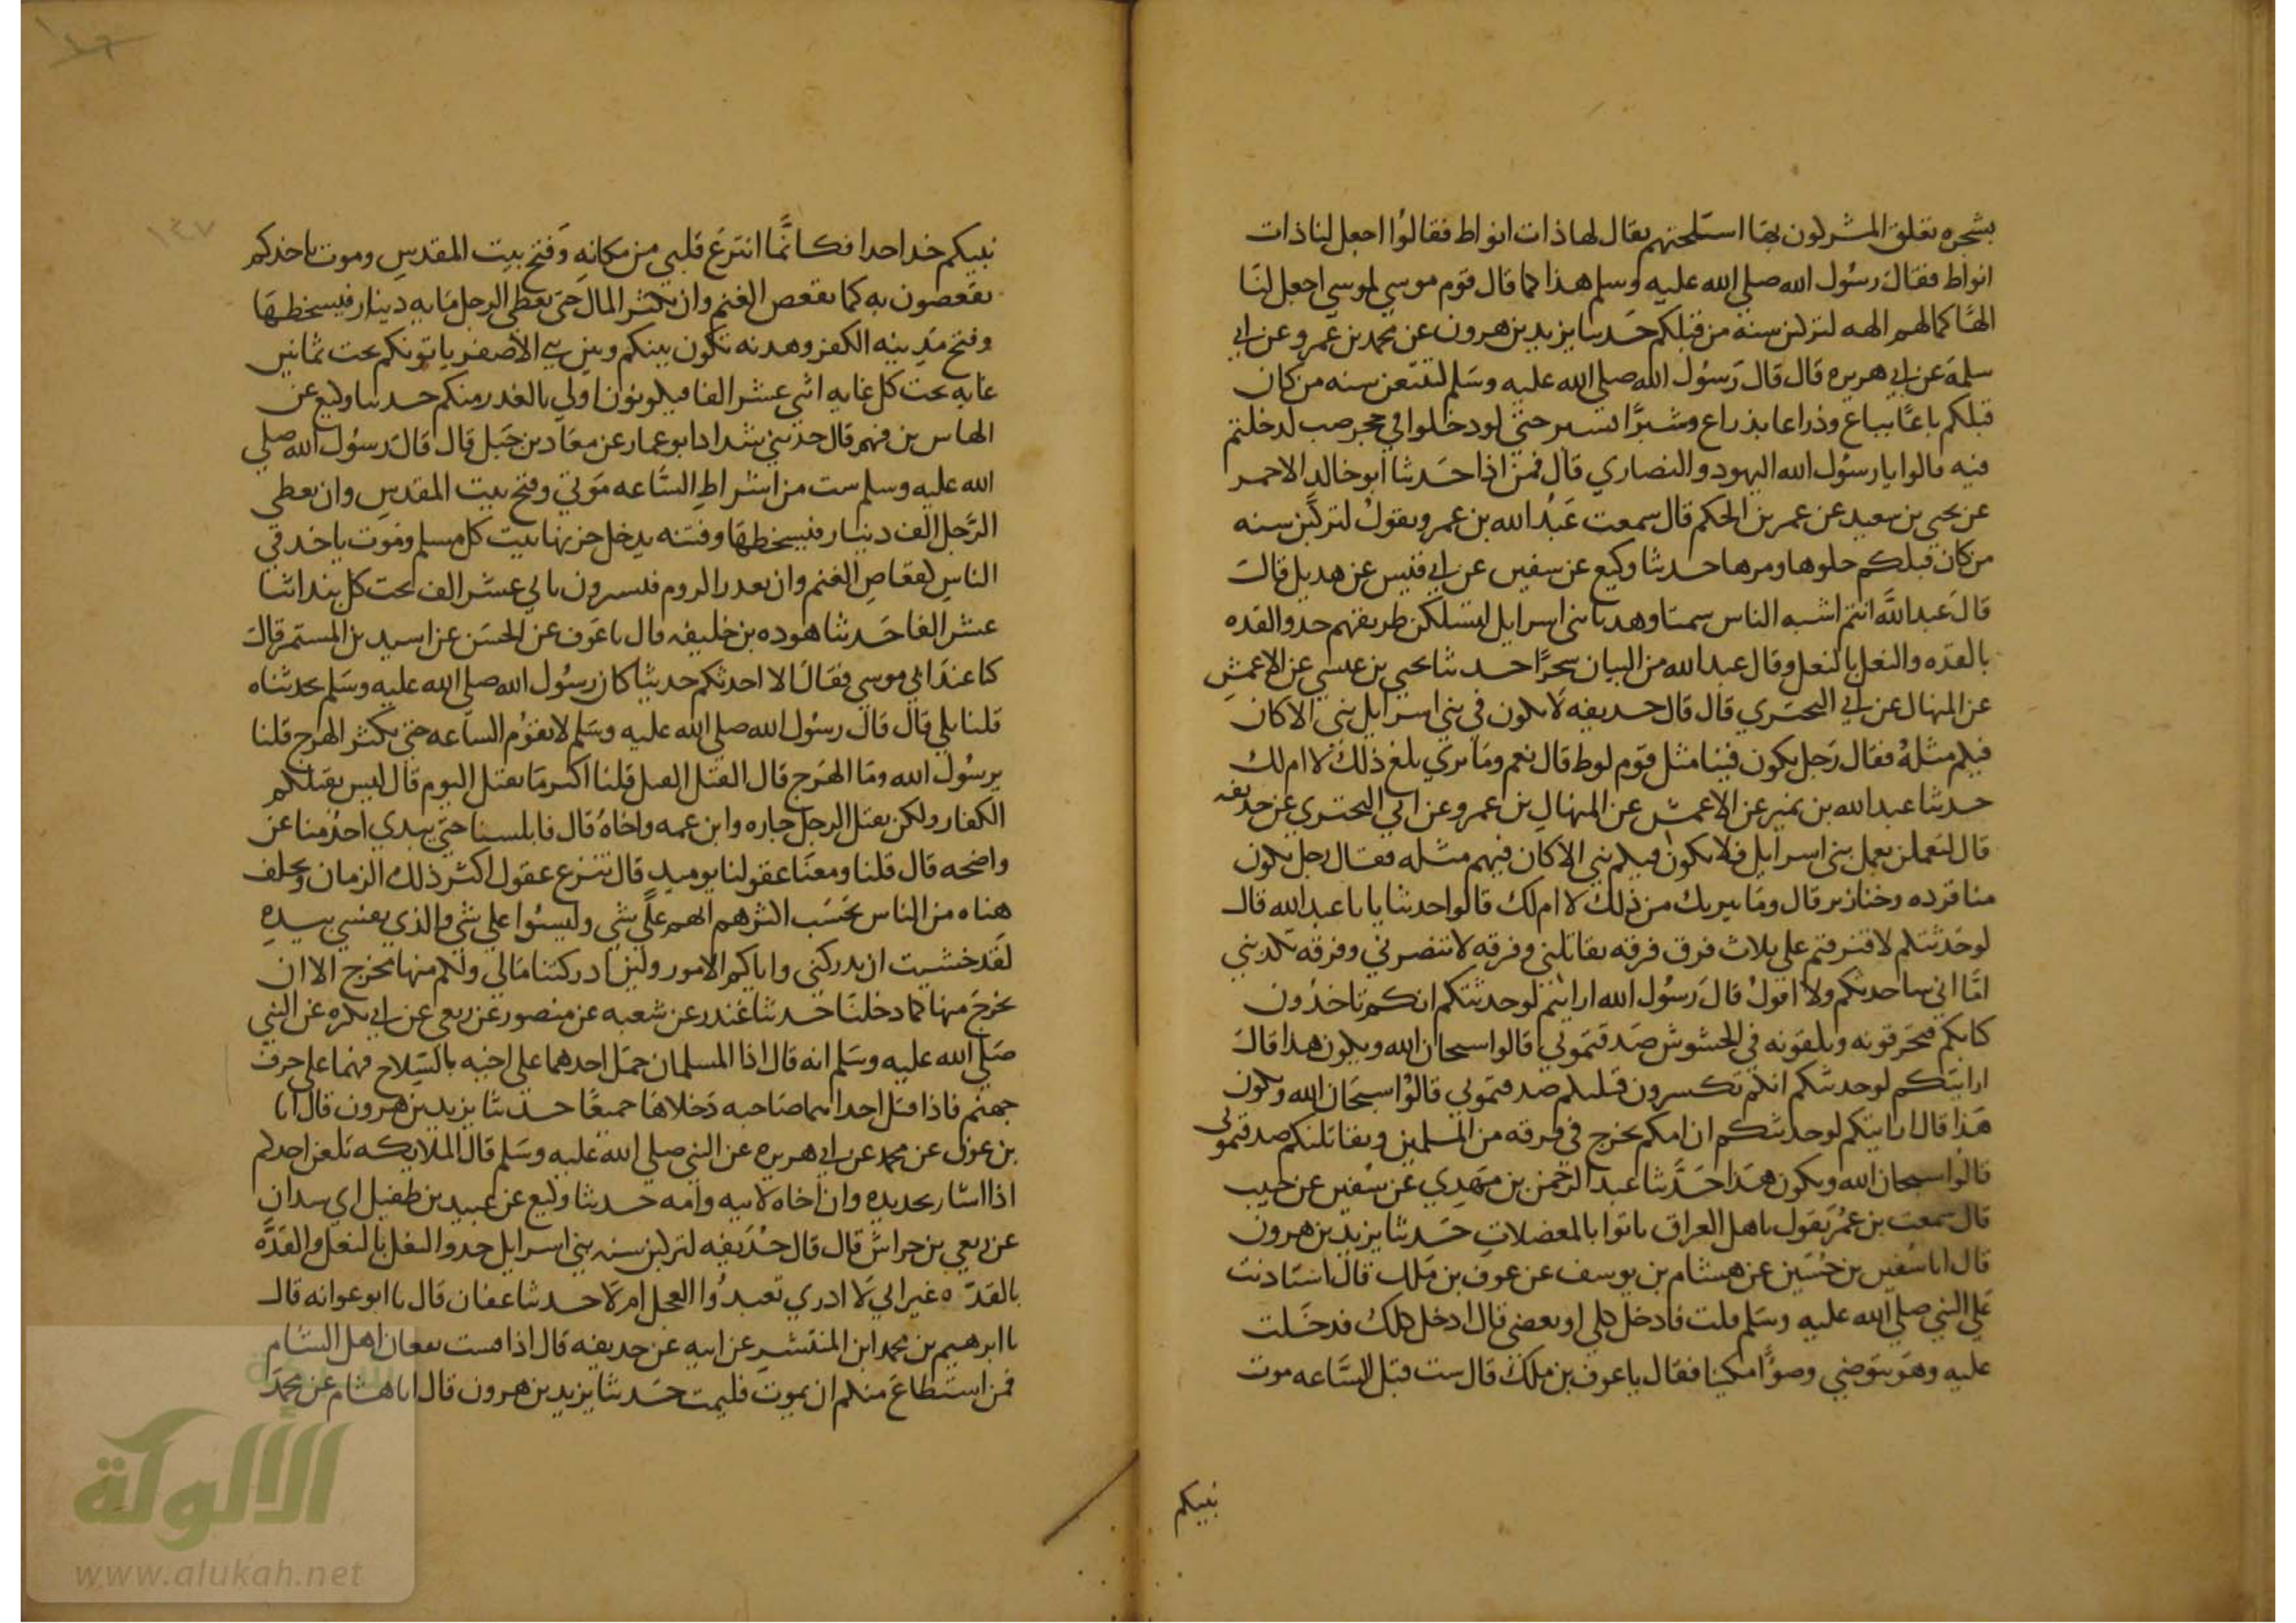 بشجره يعلق المشركون بها اسلحتهم يقال لها ذات انواط فقالوا اجعل لنا ذات
انواط فقال رسول الله صلي الله عليه وسلم هذا كما قال قوم موسي لموسي اجعل لنا
الها كما لهم الهه لتركبن سنة من قبلكم حدثنا يزيد بن هرون عن محمد بن عمرو عن ابي
سلمة عن ابي هريره قال قال رسول الله صلي الله عليه وسلم لتتبعن سنه من كان
قبلكم باعا بباع وذراعا بذراع وشبرا بشبر حتي لو دخلوا في جحر ضب لدخلتم
فيه قالوا يا رسول الله اليهود والنصاري قال فمن اذا حدثنا ابو خالد الاحمر
عن يحيي بن سعيد عن عمر بن الحكم قال سمعت عبد الله بن عمرو يقول لتركبن سنه
من كان قبلكم حلوها ومرها حدثنا وكيع عن سفين عن ابي قيس عن هديل قال
قال عبد الله انتم اشبه الناس سمتا وهديا ببني اسرايل لتسلكن طريقهم حذو القده
بالقذه والنعل بالنعل وقال عبد الله من البيان سحرا حدثنا يحيي بن عيسي عن الاعمش
عن المنهال عن ابي البحتري قال قال حذيفه لا يكون في بني اسرايل شي الا كان
فيكم مثله فقال رجل يكون فينا مثل قوم لوط قال نعم وما تري بلغ ذلك لا ام لك
حدثنا عبد الله بن نمير عن الاعمش عن المنهال بن عمرو عن ابي البحتري عن حذيفه
قال لتعملن بعمل بني اسرايل فلا يكون فيهم شي الا كان فيكم مثله فقال رجل يكون
منا قرده وخنازير قال وما يبريك من ذلك لا ام لك قالوا حدثنا يا با عبد الله قال
لو حدثتكم لافترقتم علي ثلاث فرق فرقه تقاتلني وفرقه لا تنصرني وفرقه تكذبني
اما اني ساحدثكم ولا اقول قال رسول الله ارايتم لو حدثتكم انكم تاخذون
كتابكم فتحرقونه وتلقونه في الحشوش صدقتموني قالوا سبحان الله ويكون هذا قال
ارايتكم لو حدثتكم انكم تكسرون قبلتكم صدقتموني قالوا سبحان الله ويكون
هذا قال ارايتكم لو حدثتكم ان امكم تخرج في فرقه من المسلمين وتقاتلكم صدقتموني
قالوا سبحان الله ويكون هذا حدثنا عبد الرحمن بن مهدي عن سفين عن حبيب
قال سمعت بن عمر يقول ياهل العراق تاتوا بالمعضلات حدثنا يزيد بن هرون
قال انا سفين بن حسين عن هشام بن يوسف عن عوف بن ملك قال استاذنت
علي النبي صلي الله عليه وسلم قلت فادخل كلي او بعضي قال ادخل كلك فدخلت
عليه وهو يتوضي وضوا مكينا فقال يا عوف بن ملك قال ست قبل الساعه موت
نبيكم
نبيكم خذ احدا فكانما انتزع قلبي من مكانه وفتح بيت المقدس وموت ياخذكم
تقعصون به كما تقعص الغنم وان يكثر المال حتي يعطي الرجل مايه دينار فيسخطها
وفتح مدينه الكفر وهدنه تكون بينكم وبين بني الاصفر ياتونكم تحت ثمانين
غايه تحت كل غايه اثني عشر الفا فيكونون اولي بالغدر منكم حدثنا وكيع عن
النهاس بن فهم قال حدثني شداد ابو عمار عن معاذ بن جبل قال قال رسول الله صلي
الله عليه وسلم ست من اشراط الساعه موتي وفتح بيت المقدس وان يعطي
الرجل الف دينار فيسخطها وفتنه يدخل حزنها بيت كل مسلم وموت ياخذ في
الناس كقعاص الغنم وان يغدر الروم فيسيرون باثني عشر الف تحت كل بند اثنا
عشر الفا حدثنا هوده بن خليفه قال ثنا عوف عن الحسن عن اسيد بن المتشمس قال
كنا عند ابي موسي فقال الا احدثكم حديثا كان رسول الله صلي الله عليه وسلم يحدثناه
قلنا بلي قال قال رسول الله صلي الله عليه وسلم لا تقوم الساعه حتي يكثر الهرج قلنا
يرسول الله وما الهرج قال القتل القتل قلنا اكثر مما يقتل اليوم قال ليس بقتلكم
الكفار ولكن يقتل الرجل جاره وابن عمه واخاه قال فابلسنا حتي يبدي احد منا عن
واضحه قال قلنا ومعنا عقولنا يوميد قال تنزع عقول اكثر ذلك الزمان ويخلف
هناه من الناس يحسب اكثرهم انهم علي شي وليسوا علي شي والذي نفسي بيده
لقد خشيت ان تدركني واياكم الامور ولين ادركتنا مالي ولكم منها مخرج الا ان
نخرج منها كما دخلنا حدثنا غندر عن شعبه عن منصور عن ربعي عن ابي بكره عن النبي
صلي الله عليه وسلم انه قال اذا المسلمان حمل احدهما علي اخيه بالسلاح فهما علي حرف
جهنم فاذا قتل احدهما صاحبه دخلاها جميعا حدثنا يزيد بن هرون قال انا
بن عون عن محمد عن ابي هريره عن النبي صلي الله عليه وسلم قال الملايكه تلعن احدكم
اذا اشار بحديده وان اخاه لابيه وامه حدثنا وكيع عن عبيد بن طفيل ابي سدان
عن ربعي بن حراش قال قال حذيفه لتركبن سنه بني اسرايل حذو النعل بالنعل والقذه
بالقذه غير اني لا ادري تعبدوا العجل ام لا حدثنا عفان قال ثنا ابو عوانه قال
ثنا ابرهيم بن محمد ابن المنتشر عن ابيه عن حذيفه قال اذا فست بقعان اهل الشام
فمن استطاع منكم ان يموت فليمت حدثنا يزيد بن هرون قال انا هشام عن محمد
١٤٧
الألوكة
www.alukah.net